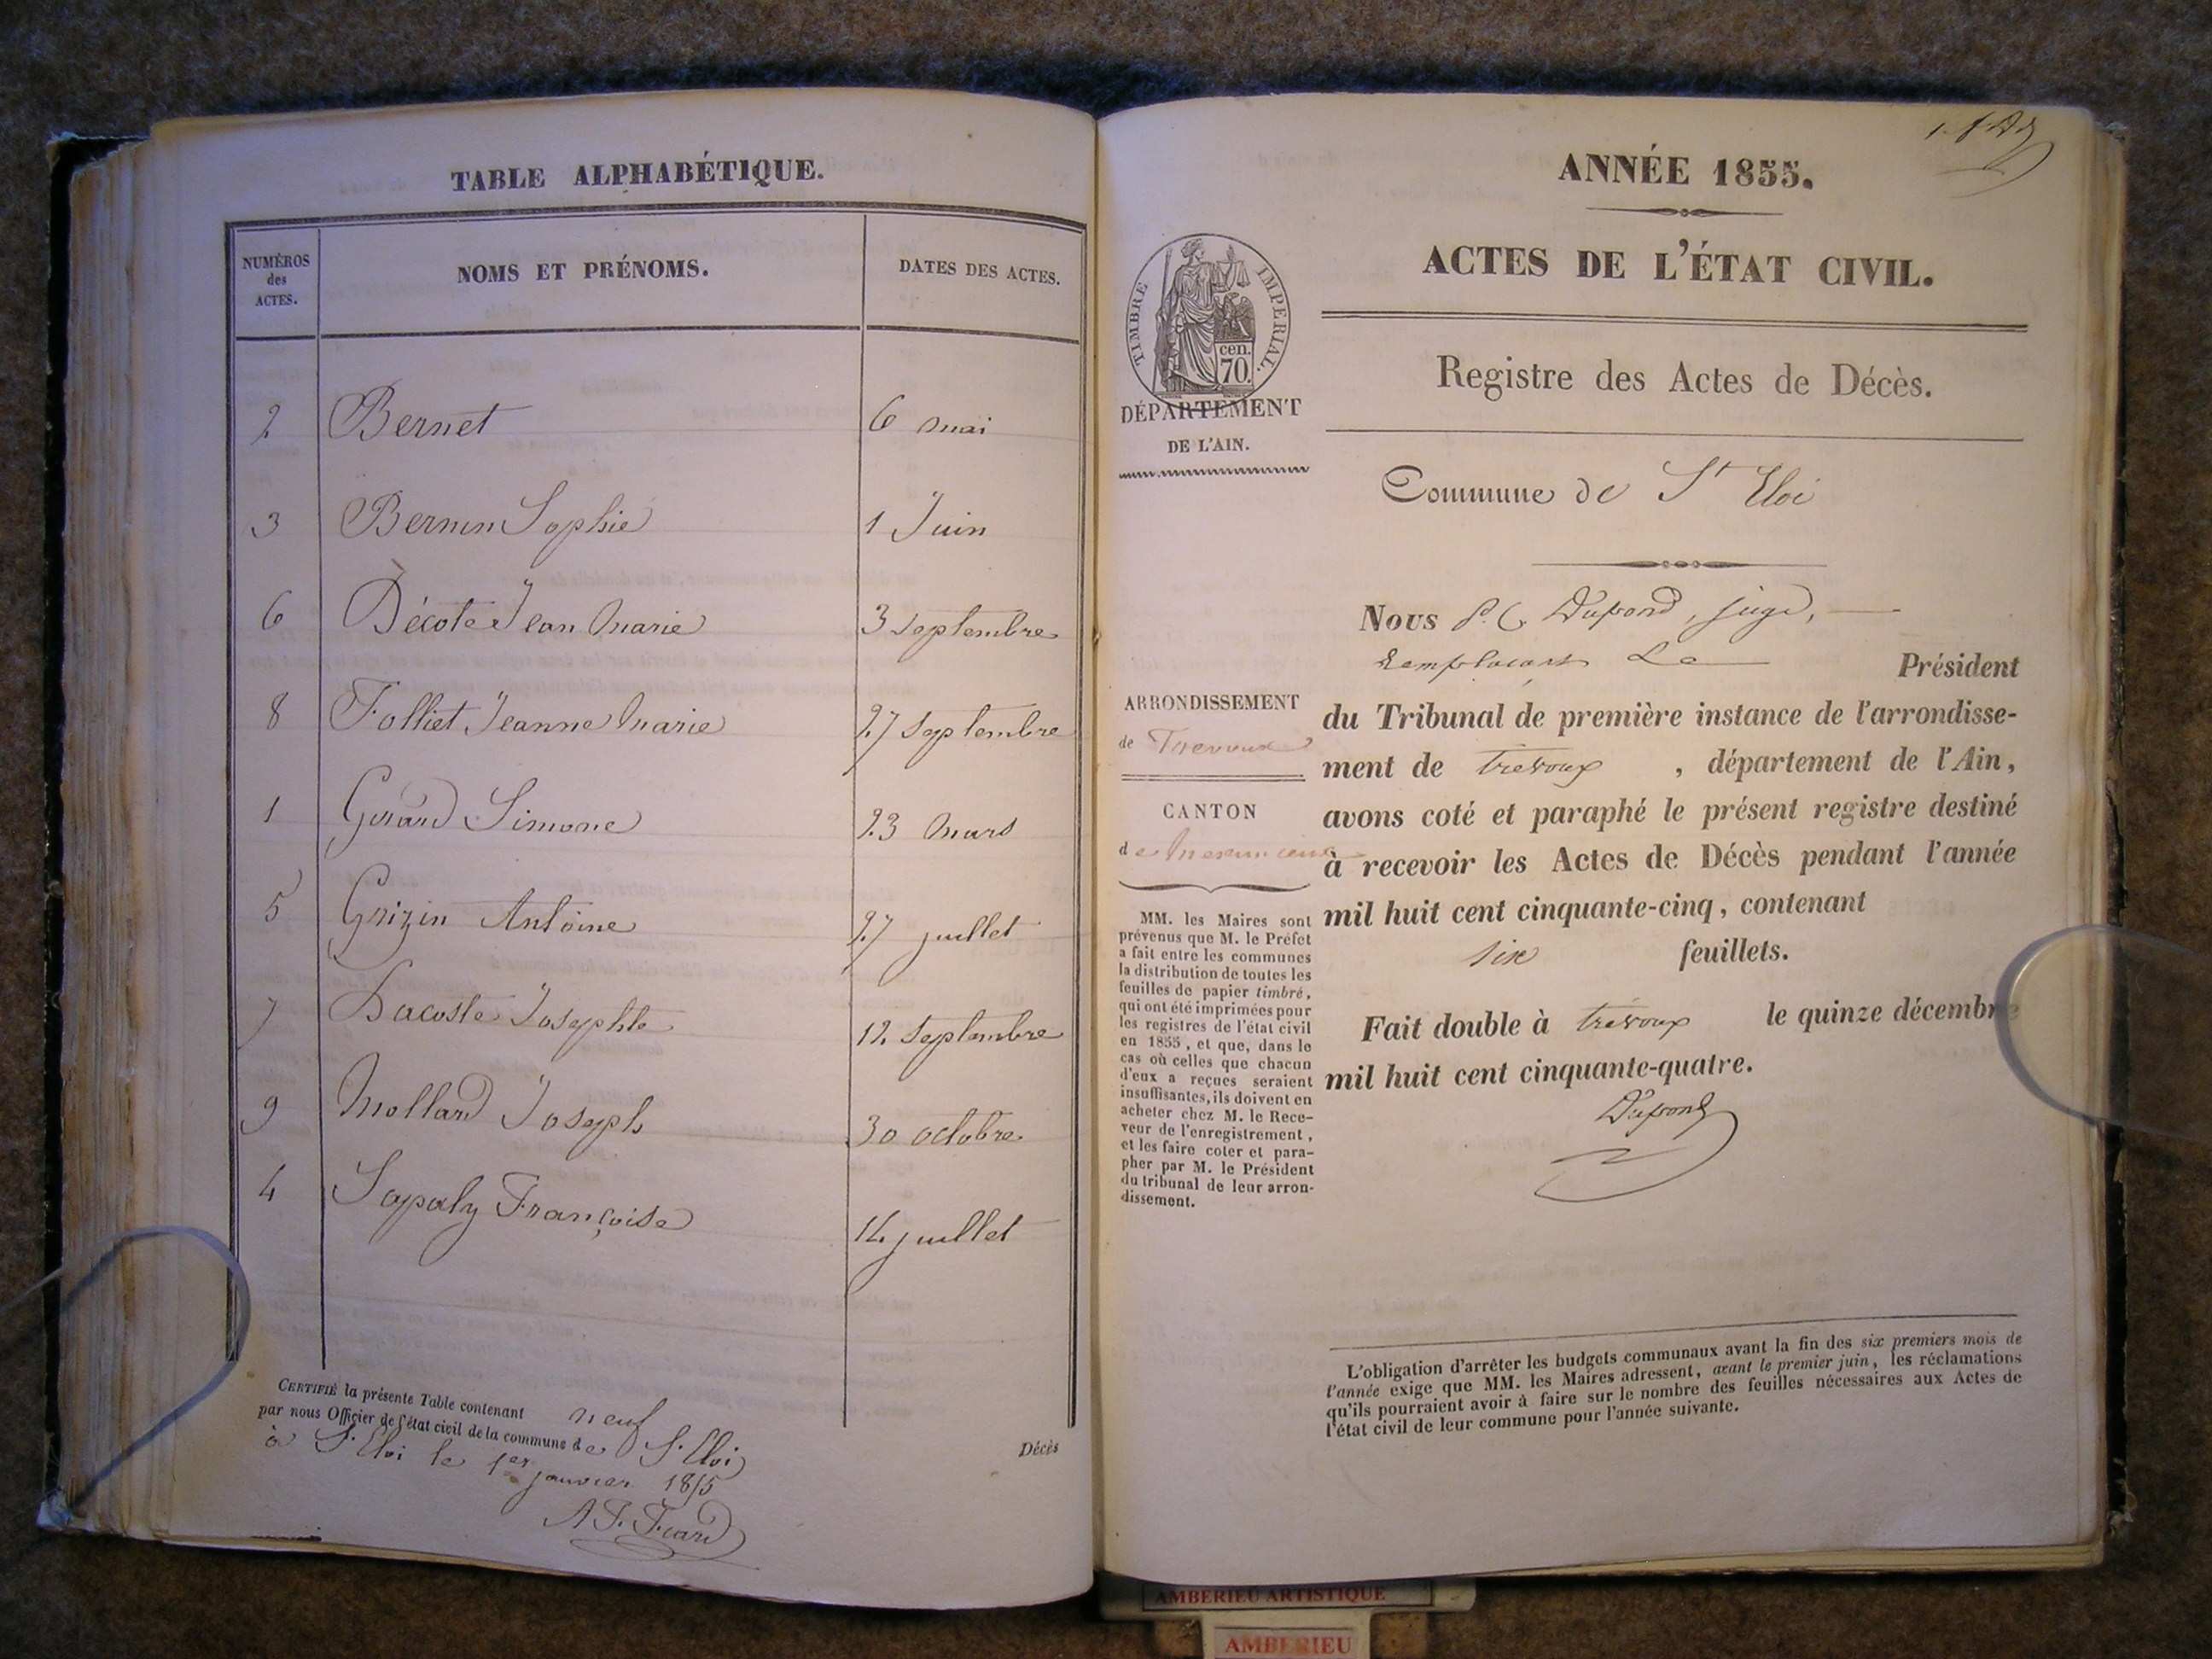 TABLE ALPHABÉTIQUE.
NUMÉROS des ACTES. NOMS ET PRÉNOMS. DATES DES ACTES.
2 Bernet 6 mai
3 Bernin Sophie 1 Juin
6 Décote Jean Marie 3 septembre
8 Folliet Jeanne Marie 27 septembre
1 Girard Simone 23 Mars
5 Grizin Antoine 27 juillet
7 Lacoste Josephte 12 septembre
9 Mollard Joseph 30 octobre
4 Sapaly Françoise 14 juillet
CERTIFIÉ la présente Table contenant neuf
par nous Officier de l'état civil de la commune de St. Eloi
à St. Eloi le 1er janvier 1855
Décès
ANNÉE 1855.
ACTES DE L'ÉTAT CIVIL.
TIMBRE IMPERIAL.
cen.
70.
DÉPARTEMENT
DE L'AIN.
Registre des Actes de Décès.
Commune de St Eloi
ARRONDISSEMENT
de Trevoux
CANTON
de
MM. les Maires sont
prévenus que M. le Préfet
a fait entre les communes
la distribution de toutes les
feuilles de papier timbré,
qui ont été imprimées pour
les registres de l'état civil
en 1855, et que, dans le
cas où celles que chacun
d'eux a reçues seraient
insuffisantes, ils doivent en
acheter chez M. le Rece-
veur de l'enregistrement,
et les faire coter et para-
pher par M. le Président
du tribunal de leur arron-
dissement.
Nous P. C. Dupond, juge,
remplaçant Le Président
du Tribunal de première instance de l'arrondisse-
ment de trévoux, département de l'Ain,
avons coté et paraphé le présent registre destiné
à recevoir les Actes de Décès pendant l'année
mil huit cent cinquante-cinq, contenant
six feuillets.
Fait double à trévoux le quinze décembre
mil huit cent cinquante-quatre.
Dupond
L'obligation d'arrêter les budgets communaux avant la fin des six premiers mois de
l'année exige que MM. les Maires adressent, avant le premier juin, les réclamations
qu'ils pourraient avoir à faire sur le nombre des feuilles nécessaires aux Actes de
l'état civil de leur commune pour l'année suivante.
AMBERIEU ARTISTIQUE
AMBERIEU